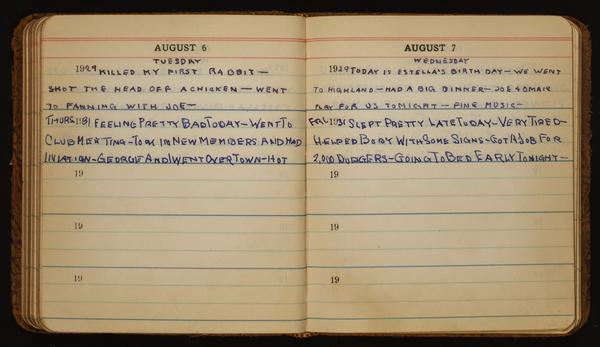 AUGUST 6
TUESDAY
1929 KILLED MY FIRST RABBIT —
SHOT THE HEAD OFF A CHICKEN — WENT
TO PANNING WITH JOE —
THURS 1931 FEELING PRETTY BAD TODAY — WENT TO
CLUB MEETING — TOOK IN NEW MEMBERS AND HAD
INIATION — GEORGE AND I WENT OVER TOWN — HOT
19
19
19
AUGUST 7
WEDNESDAY
1929 TODAY IS ESTELLA'S BIRTH DAY — WE WENT
TO HIGHLAND — HAD A BIG DINNER — JOE
PLAY FOR US TONIGHT — FINE MUSIC —
FRI. 1931 SLEPT PRETTY LATE TODAY — VERY TIRED —
HELPED BOBY WITH SOME SIGNS — GOT A JOB FOR
2,000 DODGERS — GOING TO BED EARLY TONIGHT —
19
19
19